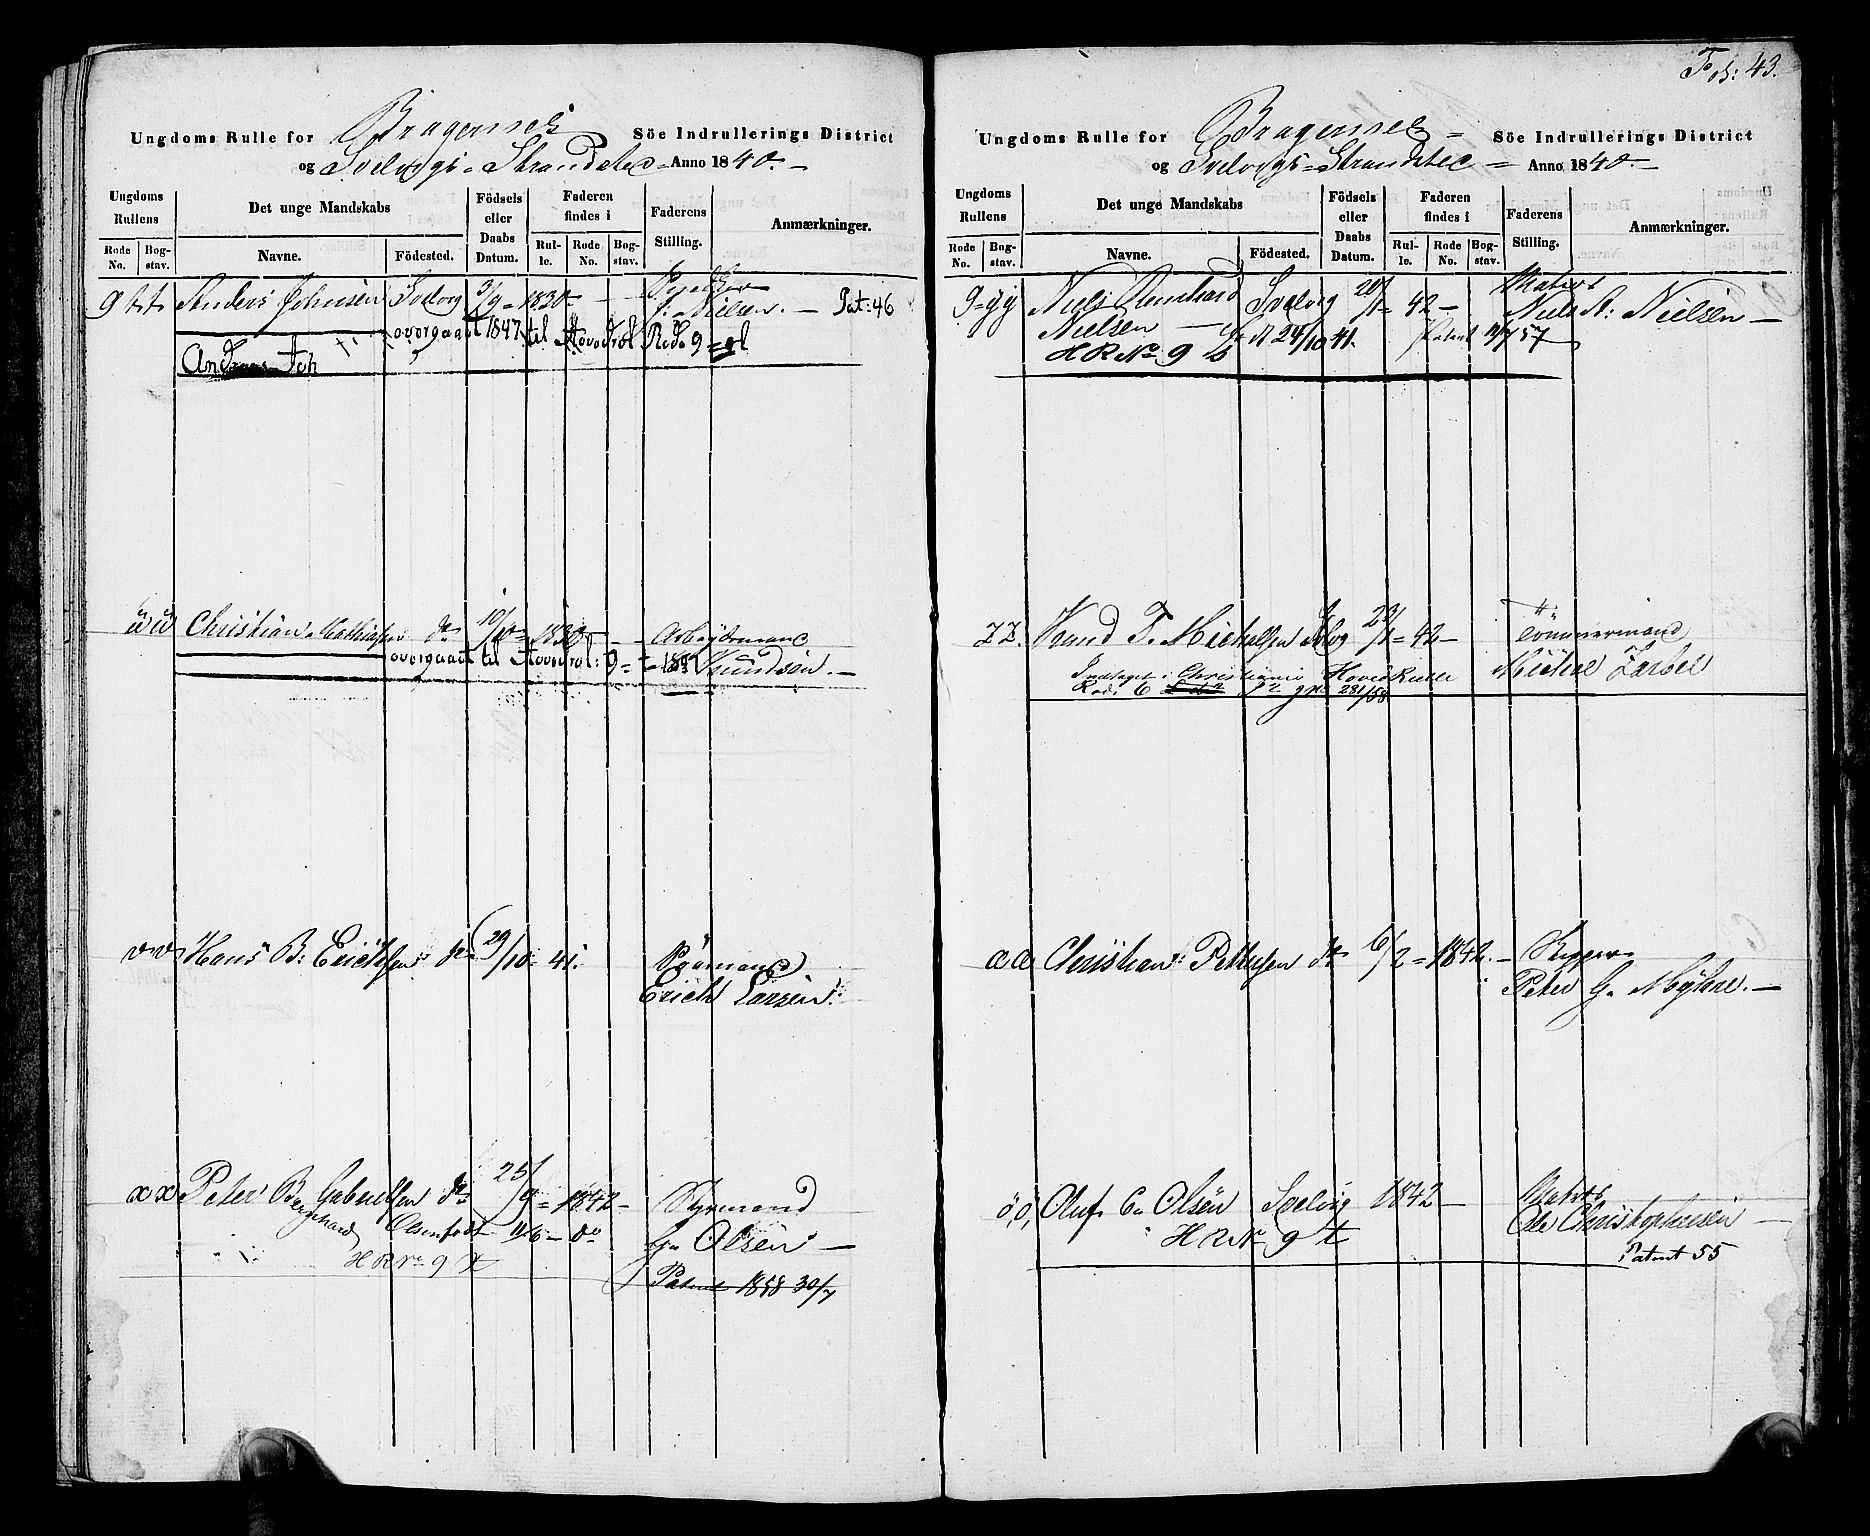 Ungdoms Rulle for Bragernes Söe Indrullerings District
og Svelvigs Strandsted Anno 1840.
Ungdoms Rullens
Det unge Mandskabs
Födsels eller Daabs Datum.
Faderen findes i
Faderens Stilling.
Anmærkninger.
Rode No.
Bogstav.
Navne.
Födested.
Rulle.
Rode No.
Bogstav.
9 tt Anders Johnsen Svelvig 9/9 = 1830
J. Nielsen. Pat: 46
overgaaet 1847 til Hovedrol Rode 9 =
uu Christian Mathiasen do 1830 Arbeydsmand
overgaaet til Hovedrol: 9 = 1847 Knudsen.
vv Hans B: Erichsen do 29/10 = 41. Styrmand
Erich Larsen.
xx Peter B Gabrielsen do 25/9 = 1842 Styrmand
Bernhard Olsen født 11/6 do G. Olsen
H R No 9
Patent 1858 30/7
Fol: 43.
Ungdoms Rulle for Bragernes Söe Indrullerings District
og Svelvigs Strandsted Anno 1840.
Ungdoms Rullens
Det unge Mandskabs
Födsels eller Daabs Datum.
Faderen findes i
Faderens Stilling.
Anmærkninger.
Rode No.
Bogstav.
Navne.
Födested.
Rulle.
Rode No.
Bogstav.
9 yy Niels Svelvig 42 Matros
Nielsen 24/10 41. Niels A: Nielsen
H R No 9 b Patent 57
zz. Knud T. Michelsen Svelvig 23/1 = 42 Tömmermand
Michel
Indtaget i Christiania Hoved Rulle
Rode 6 231/58
aa Christian Pettersen do 6/2 = 1842. Skipper
Peter G. Myhre.
öö, Oluf C. Olsen Svelvig 1842 Matros
Ole Christophersen
H R No 9 t
Patent 55